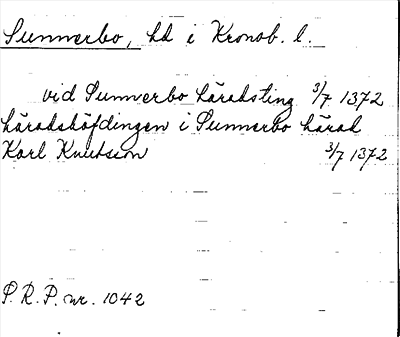 Sunnerbo, hd i Kronob. l.
vid Sunnerbo häradsting 3/7 1372
häradshöfdingen i Sunnerbo härad
Karl Knutsson 3/7 1372
P. R. P. nr. 1042